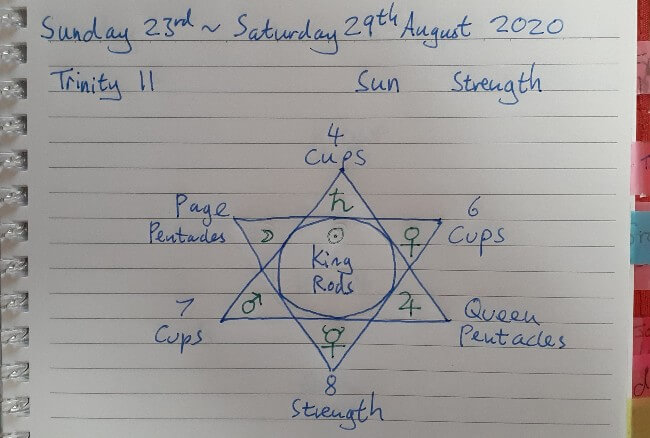 Sunday 23rd ~ Saturday 29th August 2020
Trinity 11 Sun Strength
4
Cups
Page
Pentacles
6
Cups
♄
☽ ☉ ♀
King
Rods
♂ ♃
7
Cups
Queen
Pentacles
☿
8
Strength